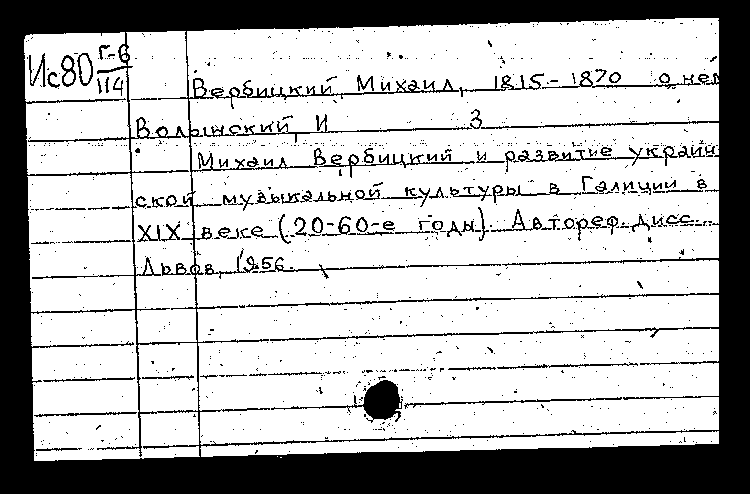 Ис80 Г-6
114
Вербицкий, Михаил, 1815-1870 о нем
Волынский, И 3
Михаил Вербицкий и развитие украин
ской музыкальной культуры в Галиции в
XIX веке (20-60-е годы). Автореф. дисс...
Львов, 1956.